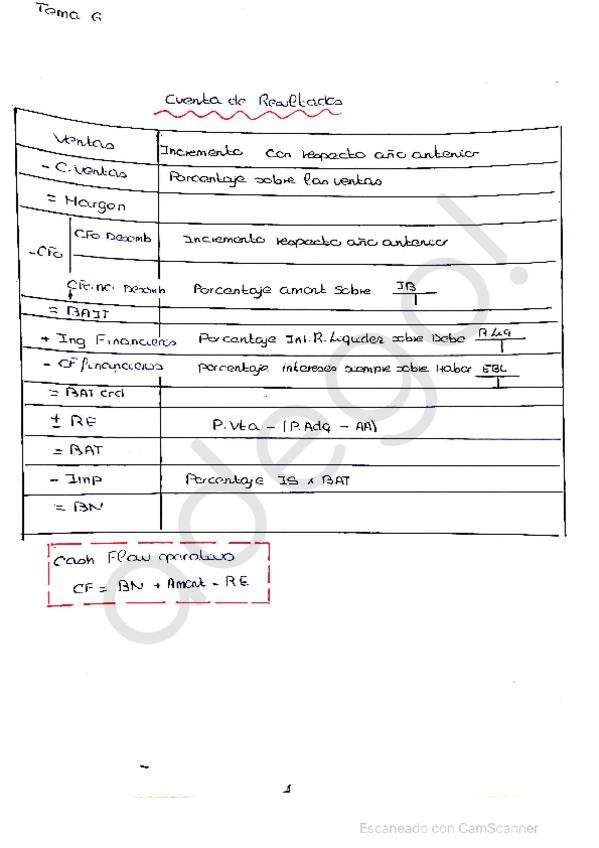 Tema 6
Cuenta de Resultados
Ventas Incremento con respecto año anterior
- C. Ventas Porcentaje sobre las ventas
= Margen
- CFO CFO Desemb Incremento respecto año anterior
CFO. nc. Desemb Porcentaje amort sobre IB
= BAIT
+ Ing Financieros Porcentaje Int. R. Liquidez sobre Debe R Liq
- CF financieros porcentaje intereses siempre sobre Haber EBL
= BAT ord
± RE P. Vta - (P. Adq - AA)
= BAT
- Imp Porcentaje IS x BAT
= BN
Cash Flow operativo
CF = BN + Amort - RE
1
adego!
Escaneado con CamScanner